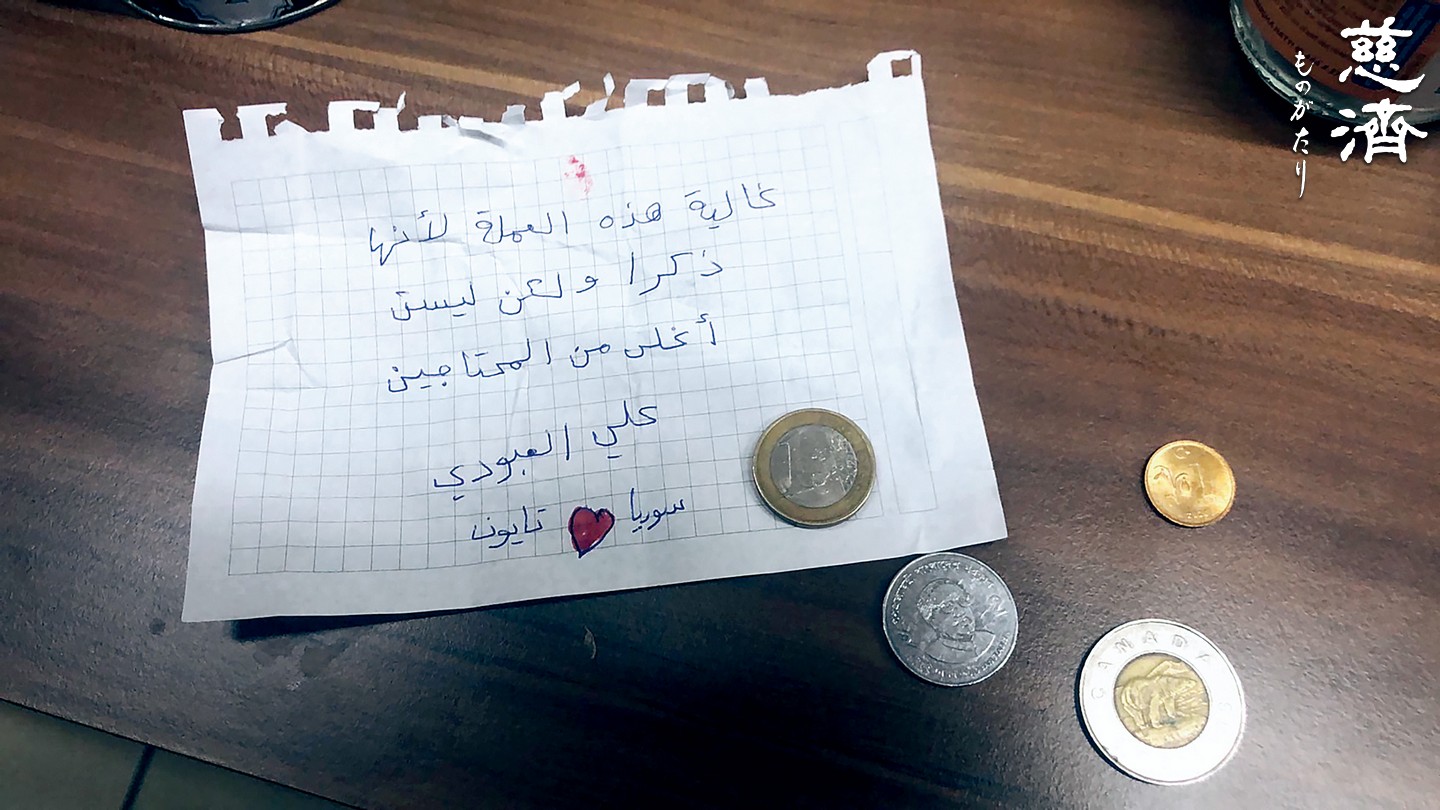 غالية هذه العملة لأنها
ذكرا ولكن ليست
أغلى من المحتاجين
علي العبودي
سوريا ❤ تايون
慈濟
ものがたり
CANADA
1